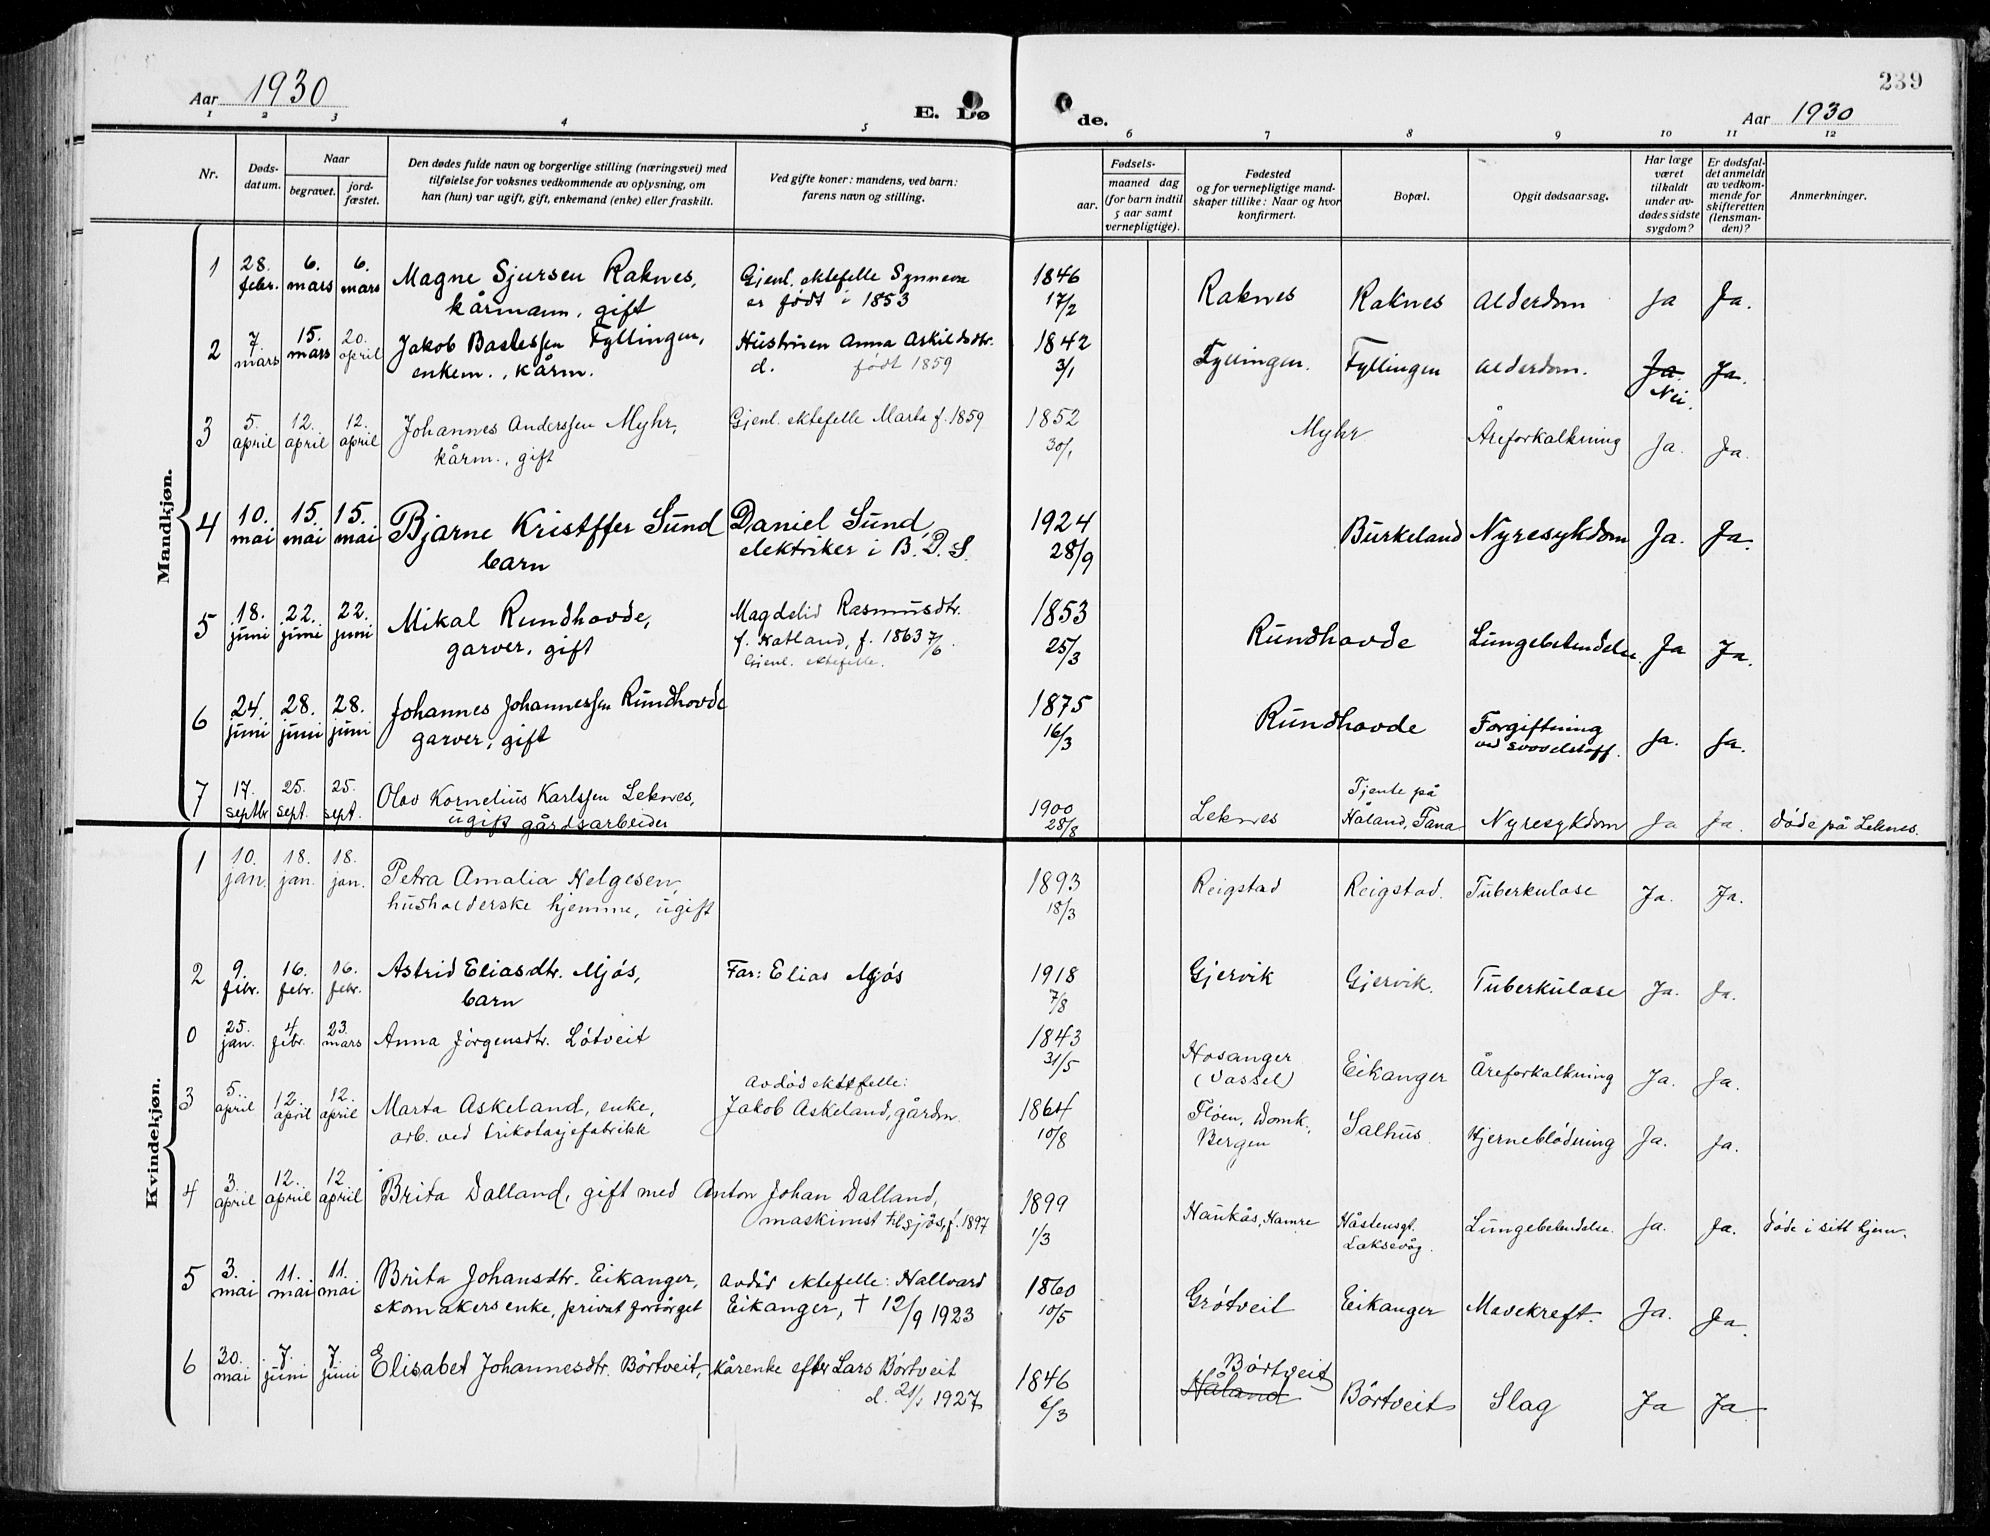 239
Aar 1930
E. Dø
de.
Aar 1930
1 2 3 4 5 6 7 8 9 10 11 12
Nr.
Døds-
datum.
Naar
begravet.
jord-
fæstet.
Den dødes fulde navn og borgerlige stilling (næringsvei) med
tilføielse for voksnes vedkommende av oplysning, om
han (hun) var ugift, gift, enkemand (enke) eller fraskilt.
Ved gifte koner: mandens, ved barn:
farens navn og stilling.
Fødsels-
aar.
maaned dag
(for barn indtil
5 aar samt
vernepligtige).
Fødested
og for vernepligtige mand-
skaper tillike: Naar og hvor
konfirmert.
Bopæl.
Opgit dødsaarsag.
Har læge
været
tilkaldt
under av-
dødes sidste
sygdom?
Er dødsfal-
det anmeldt
av vedkom-
mende for
skifteretten
(lensman-
den)?
Anmerkninger.
Mandkjøn.
1 28. febr. 6. mars 6. mars Magne Sjursen Raknes, Gjenl. ektefelle Synneva 1846 Raknes Raknes Alderdom Ja Ja.
kårmann, gift er født i 1853 17/2
2 7. mars 15. mars 20. april Jakob Bastessen Fyllingen, Hustruen Anna Askildsdtr. 1842 Fyllingen. Fyllingen Alderdom. Ja. Ja.
enkem., kårm. d. født 1859 3/1 Nei.
3 5. april 12. april 12. april Johannes Anderssen Myhr, Gjenl. ektefelle Marta f. 1859 1852 Myhr Åreforkalkning Ja. Ja.
kårm., gift 30/1
4 10. mai 15. mai 15. mai Bjarne Kristffer Sund Daniel Sund, 1924 Burkeland Nyresykdom Ja. Ja.
barn elektriker i B. D. S. 28/9
5 18. juni 22. juni 22. juni Mikal Rundhovde, Magdelid Rasmusdtr. 1853 Rundhovde Lungebetendelse Ja Ja.
garver, gift f. Hatland, f. 1863 7/6. 25/3
Gjenl. ektefelle.
6 24. juni 28. juni 28. juni Johannes Johannessen Rundhovde 1875 Rundhovde Forgiftning Ja. Ja.
garver, gift 16/3 ved svovelstoff.
7 17. septbr 25. sept. 25. sept. Olav Kornelius Karlssen Leknes, 1900 Leknes Tjente på
ugift gårdsarbeider 28/8 Håland, Fana Nyresykdom Ja Ja. døde på Leknes.
Kvindekjøn.
1 10. jan. 18. jan. 18. jan. Petra Amalia Helgesen, 1893 Reigstad Reigstad. Tuberkulose Ja. Ja.
husholderske hjemme, ugift 18/3
2 9. febr. 16. febr. 16. febr. Astrid Eliasdtr. Mjøs, Far: Elias Mjøs 1918 Gjervik Gjervik. Tuberkulose Ja. Ja.
barn 7/8
0 25. jan. 4 febr. 23. mars Anna Jørgensdtr. Løtveit 1843 Hosanger Eikanger Åreforkalkning Ja. Ja.
31/5 (Vassel)
3 5. april 12. april 12. april Marta Askeland, enke, Avdød ektefelle:
Jakob Askeland, gårdm. 1864 Fløen, Domk, Salhus. Hjerneblødning Ja. Ja.
arb. ved trikotasjefabrikk 10/8 Bergen
4 3. april 12. april 12 april Brita Dalland, gift med Anton Johan Dalland, 1899 Haukås, Hamre Håstensgt. Lungebetendelse. Ja. Ja. døde i sitt hjem.
maskinist tilsjøs, f. 1897 1/3 Laksevåg.
5 3. mai 11. mai 11. mai Brita Johansdtr. Eikanger, Avdød ektefelle: Hallvard 1860 Grøtveit Eikanger Mavekreft. Ja. Ja.
skomakersenke, privat forsørget Eikanger, † 12/9 1923 10/5
6 30. mai 7. juni 7 juni Elisabet Johannesdtr. Børtveit, kårenke efter Lars Børtveit 1846 Børtveit Børtveit Slag Ja Ja
d. 21/1 1927 6/3 Håland